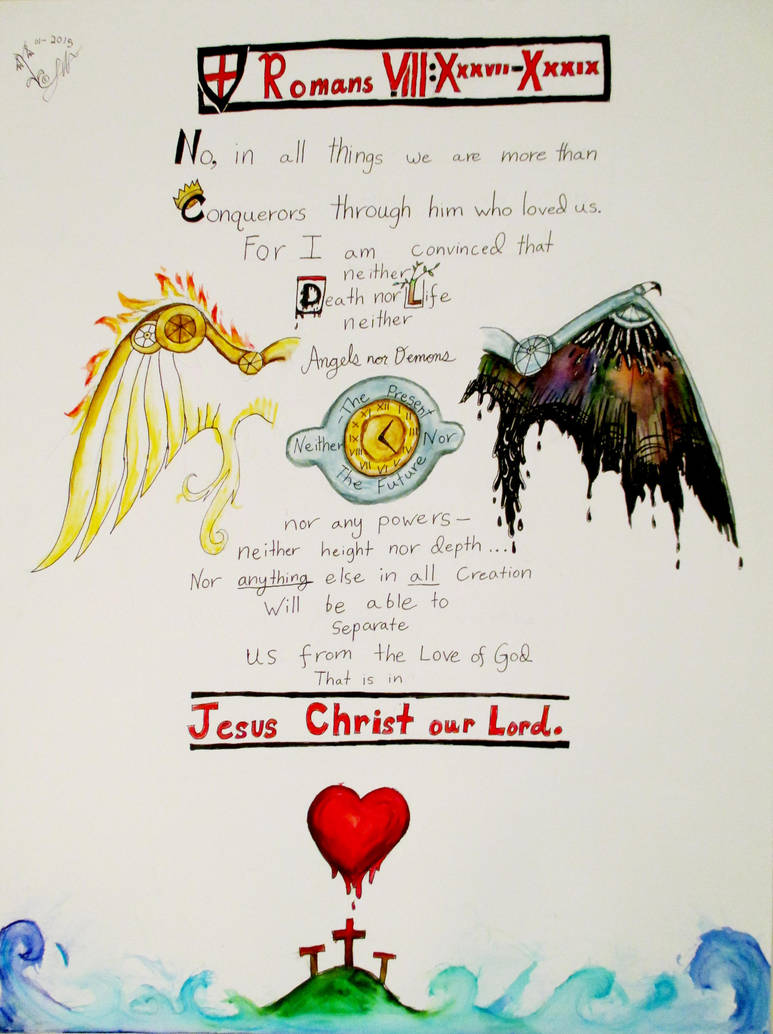 III-2019
Romans VIII:XXXVII-XXXIX
No, in all things we are more than
Conquerors through him who loved us.
For I am convinced that
neither
Death nor Life
neither
Angels nor Demons
The Present
XII I II III IV V VI VII VIII IX X XI
Neither Nor
The Future
nor any powers—
neither height nor depth...
Nor anything else in all Creation
Will be able to
Separate
us from the Love of God
That is in
Jesus Christ our Lord.